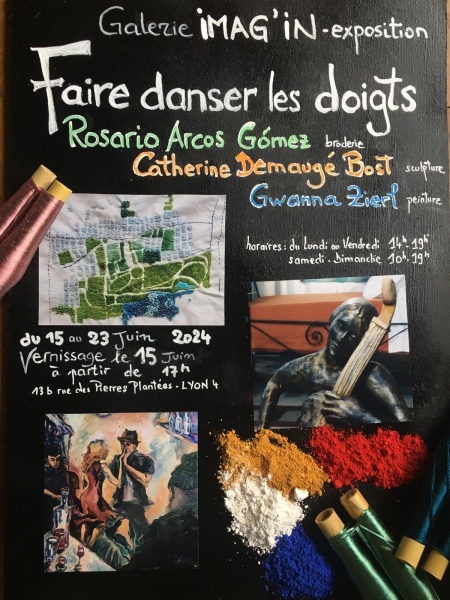 Galerie iMAG'iN - exposition
Faire danser les doigts
Rosario Arcos Gómez broderie
Catherine Demaugé Bost sculpture
Gwanna Zierl peinture
horaires : du Lundi au Vendredi 14h. 19h
samedi - Dimanche 10h. 19h
du 15 au 23 Juin 2024
Vernissage le 15 Juin
à partir de 17h
13 b rue des Pierres Plantées - LYON 4